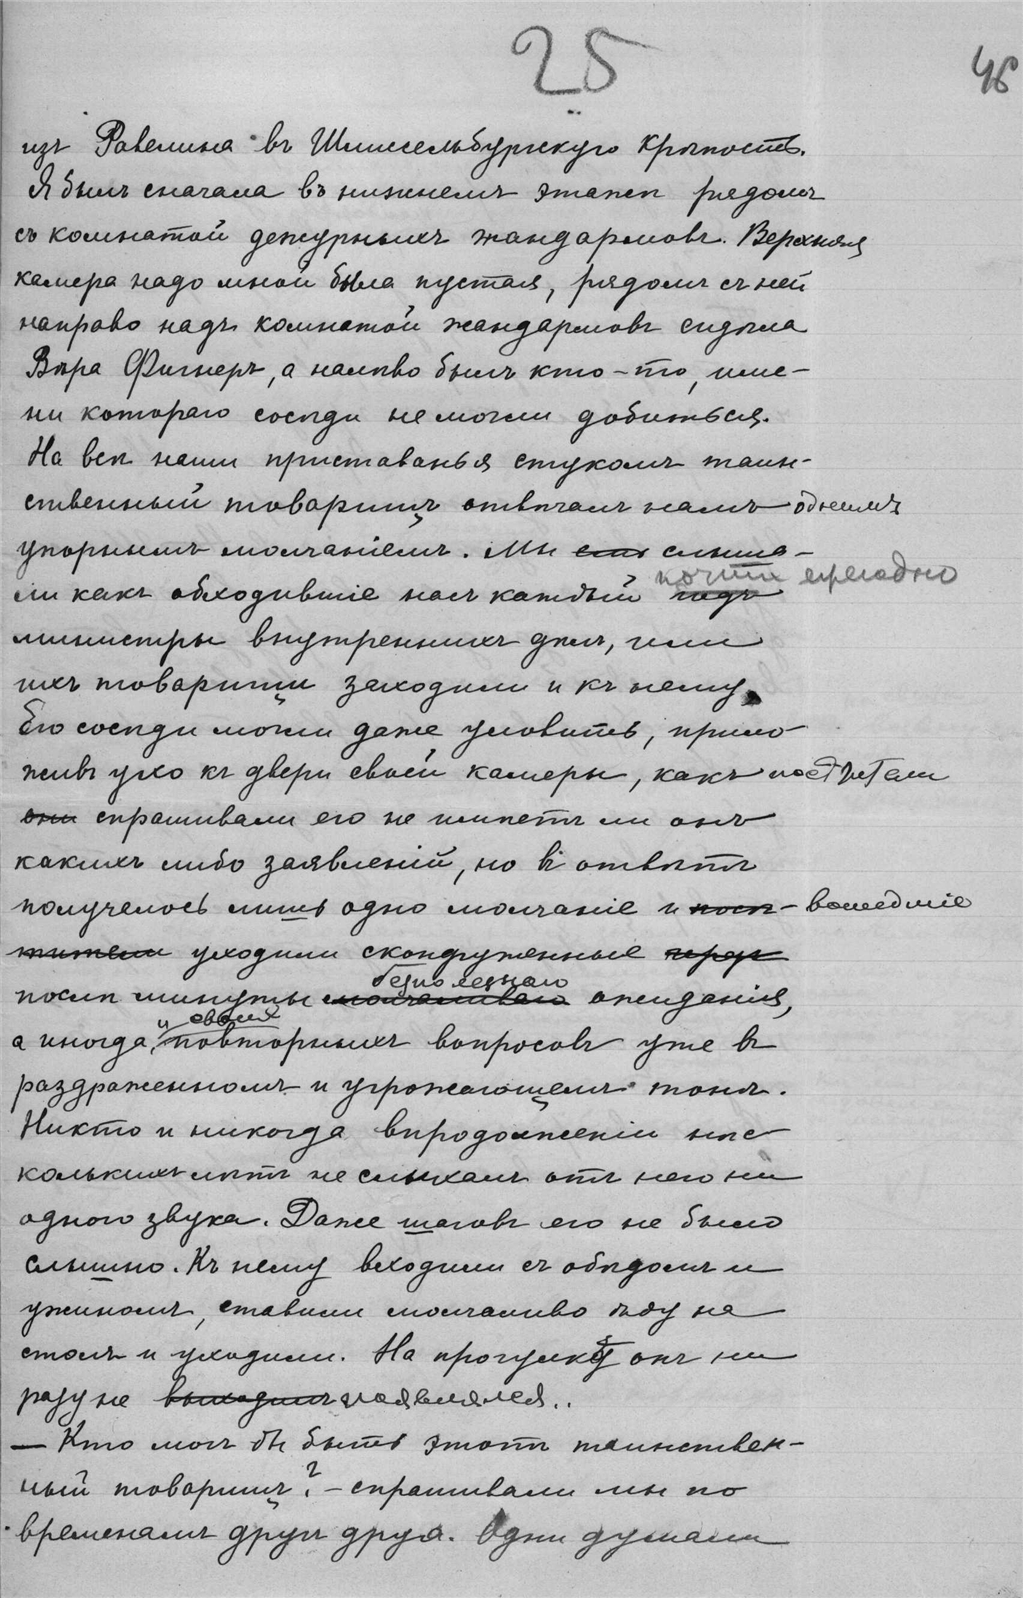 25
46
изъ Равелина въ Шлиссельбургскую крѣпость.
Я былъ сначала въ нижнемъ этажѣ рядомъ
съ комнатой дежурныхъ жандармовъ. Верхняя
камера надо мной была пустая, рядомъ съ ней
направо надъ комнатой жандармовъ сидѣла
Вѣра Фигнеръ, а налѣво былъ кто-то, име-
ни котораго сосѣди не могли добиться.
На всѣ наши приставанья стукомъ таин-
ственный товарищъ отвѣчалъ намъ однимъ
упорнымъ молчаніемъ. Мы слыша-
ли какъ обходившіе насъ каждый годъ почти ежегодно
министры внутреннихъ дѣлъ, или
ихъ товарищи заходили и къ нему.
Его сосѣди могли даже уловить, прило-
живъ ухо къ двери своей камеры, какъ посѣтители
они спрашивали его не имѣетъ ли онъ
какихъ либо заявленій, но въ отвѣтъ
получелось лишь одно молчаніе и посѣ- вошедшіе
тители уходили сконфуженные
послѣ минуты молчаливаго безполезнаго ожиданія,
а иногда, и своихъ повторныхъ вопросовъ уже въ
раздраженномъ и угрожающемъ тонѣ.
Никто и никогда впродолженіи нѣс-
колькихъ лѣтъ не слыхалъ отъ него ни
одного звука. Даже шаговъ его не было
слышно. Къ нему входили съ обѣдомъ и
ужиномъ, ставили молчаливо ѣду на
столъ и уходили. На прогулку онъ ни
разу не выходилъ появлялся..
— Кто могъ бы быть этотъ таинствен-
ный товарищъ? — спрашивали мы по
временамъ другъ друга. Одни думали